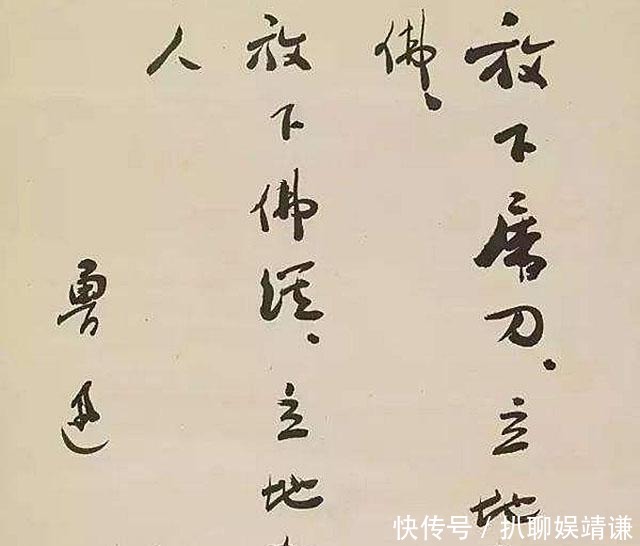 放下屠刀、立地
佛、
放下佛經、立地
人
魯迅
快传号 / 扒聊娱靖谦